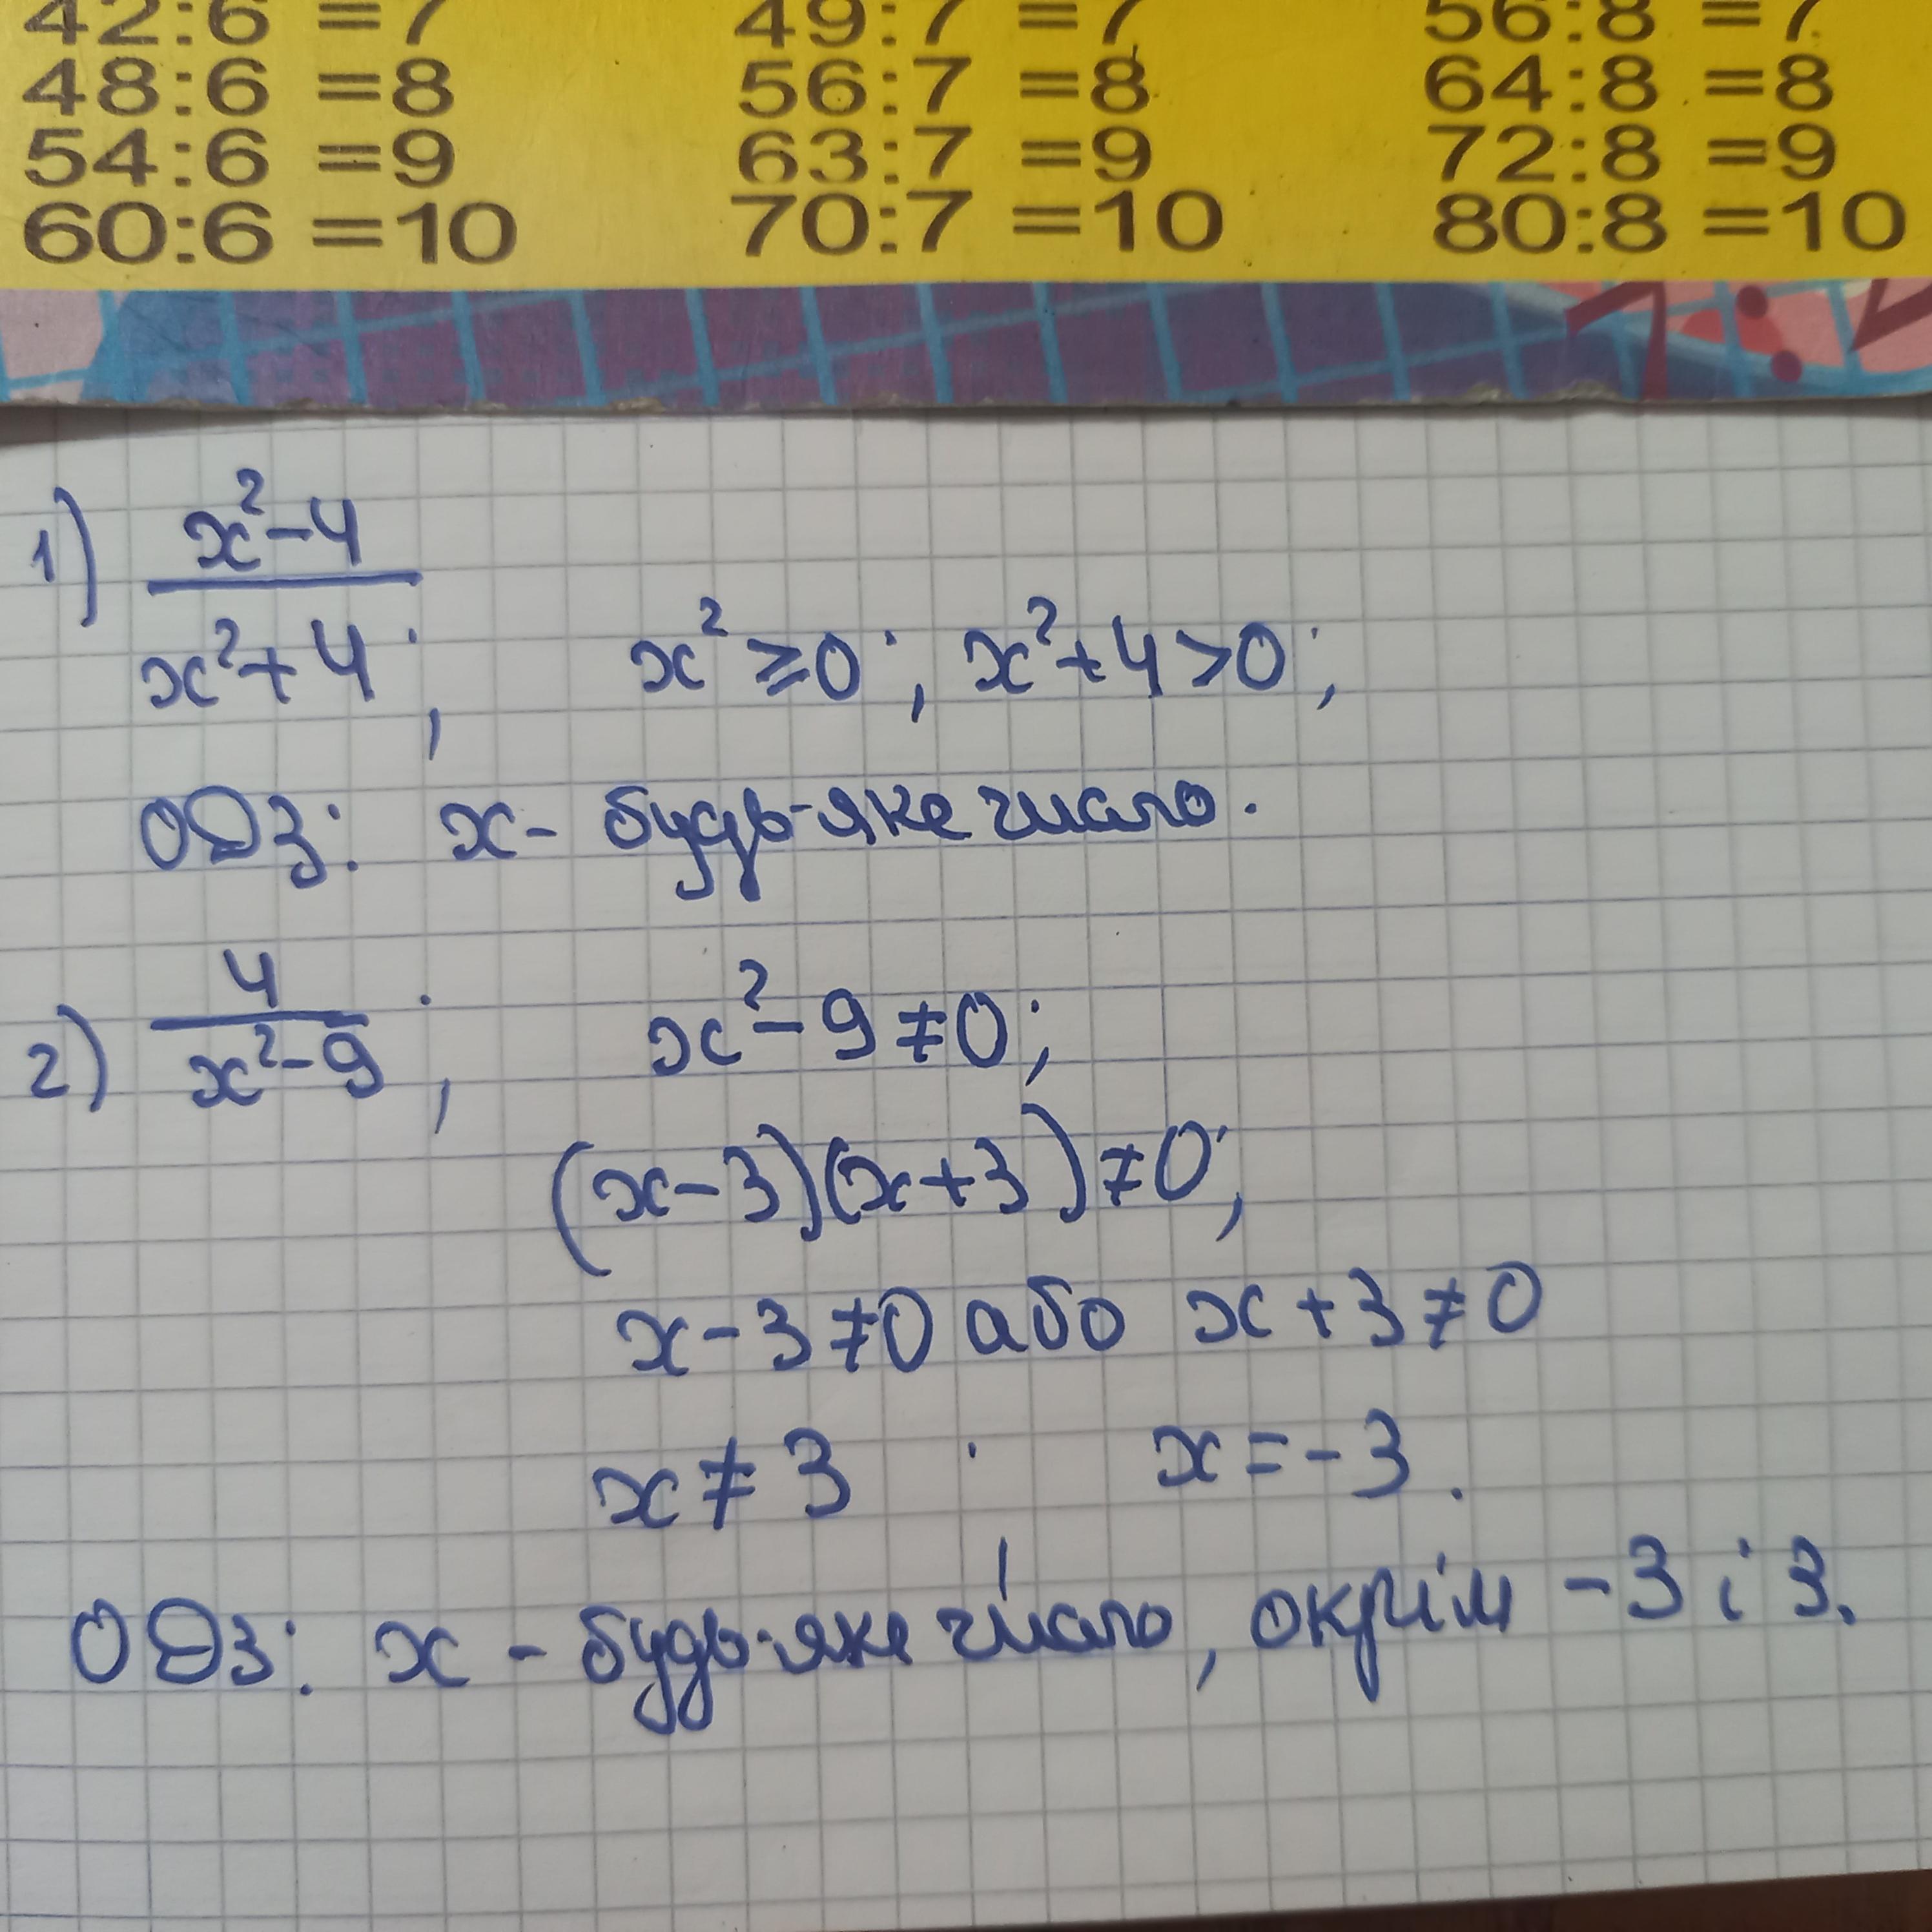 42:6 =7 49:7 =7 56:8 =7
48:6 =8 56:7 =8 64:8 =8
54:6 =9 63:7 =9 72:8 =9
60:6 =10 70:7 =10 80:8 =10
1) x²-4
x²+4; x²≥0; x²+4>0;
ОДЗ: x- будь-яке число.
2) 4
x²-9; x²-9≠0;
(x-3)(x+3)≠0;
x-3≠0 або x+3≠0
x≠3; x=-3.
ОДЗ: x - будь-яке число, окрім -3 і 3.